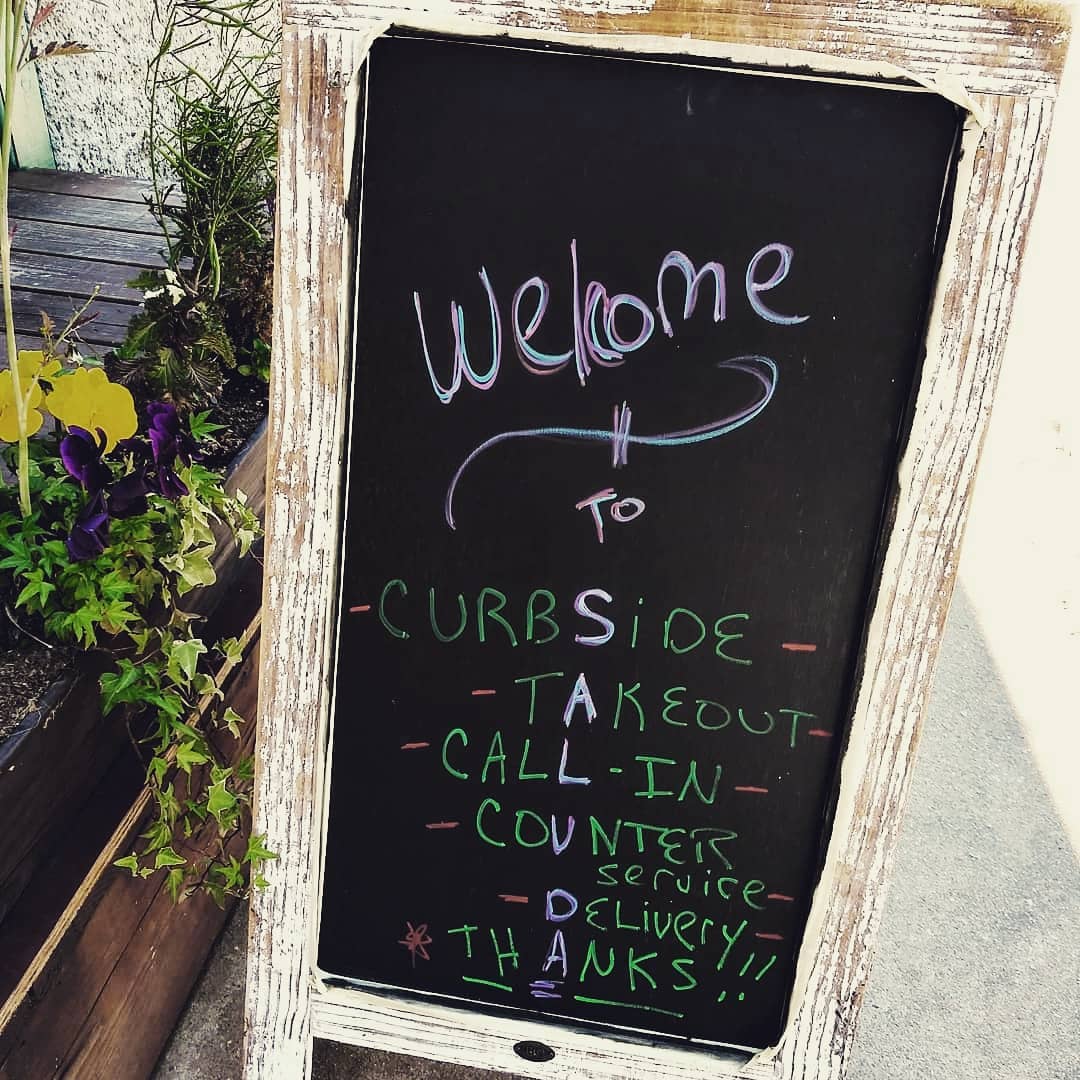 Welcome
To
- CURBSiDE -
- TAKEOUT -
- CALL-IN -
- COUNTER
service -
- DELivery -
* THANKS!!!